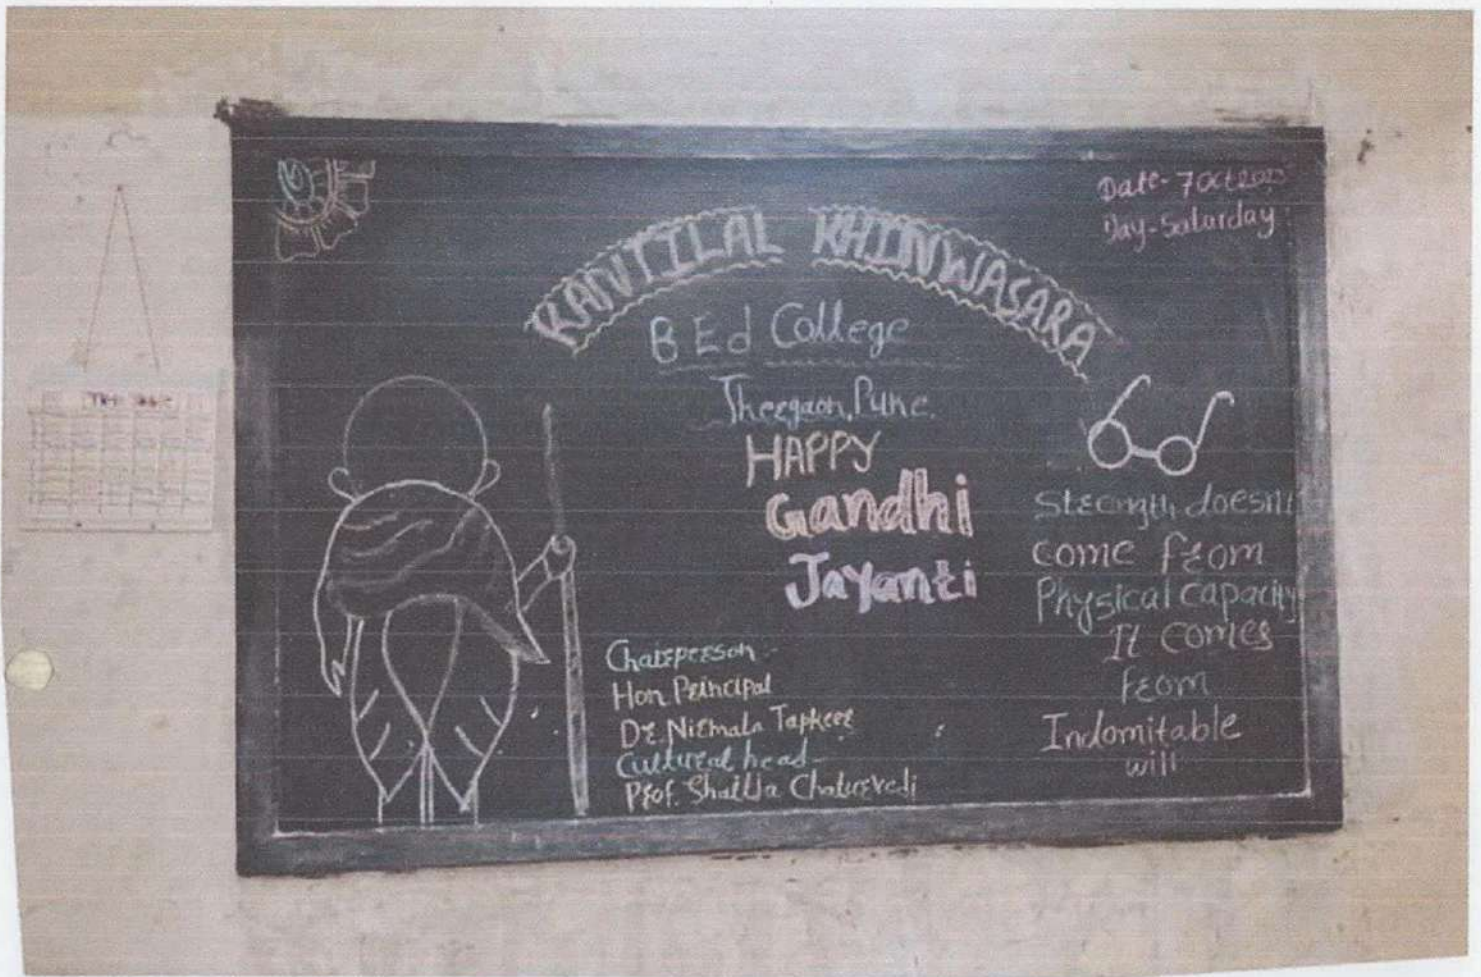 Date- 7 Oct 2023
Day- Saturday
KANTILAL KHINWASARA
B Ed College
Thergaon, Pune.
HAPPY
Gandhi
Jayanti
Strength doesn't
come from
Physical capacity
It comes
from
Indomitable
will
Chairperson :-
Hon Principal
Dr. Nirmala Tapkeer
Cultural head-
Prof. Shailja Chaturvedi
Time Table